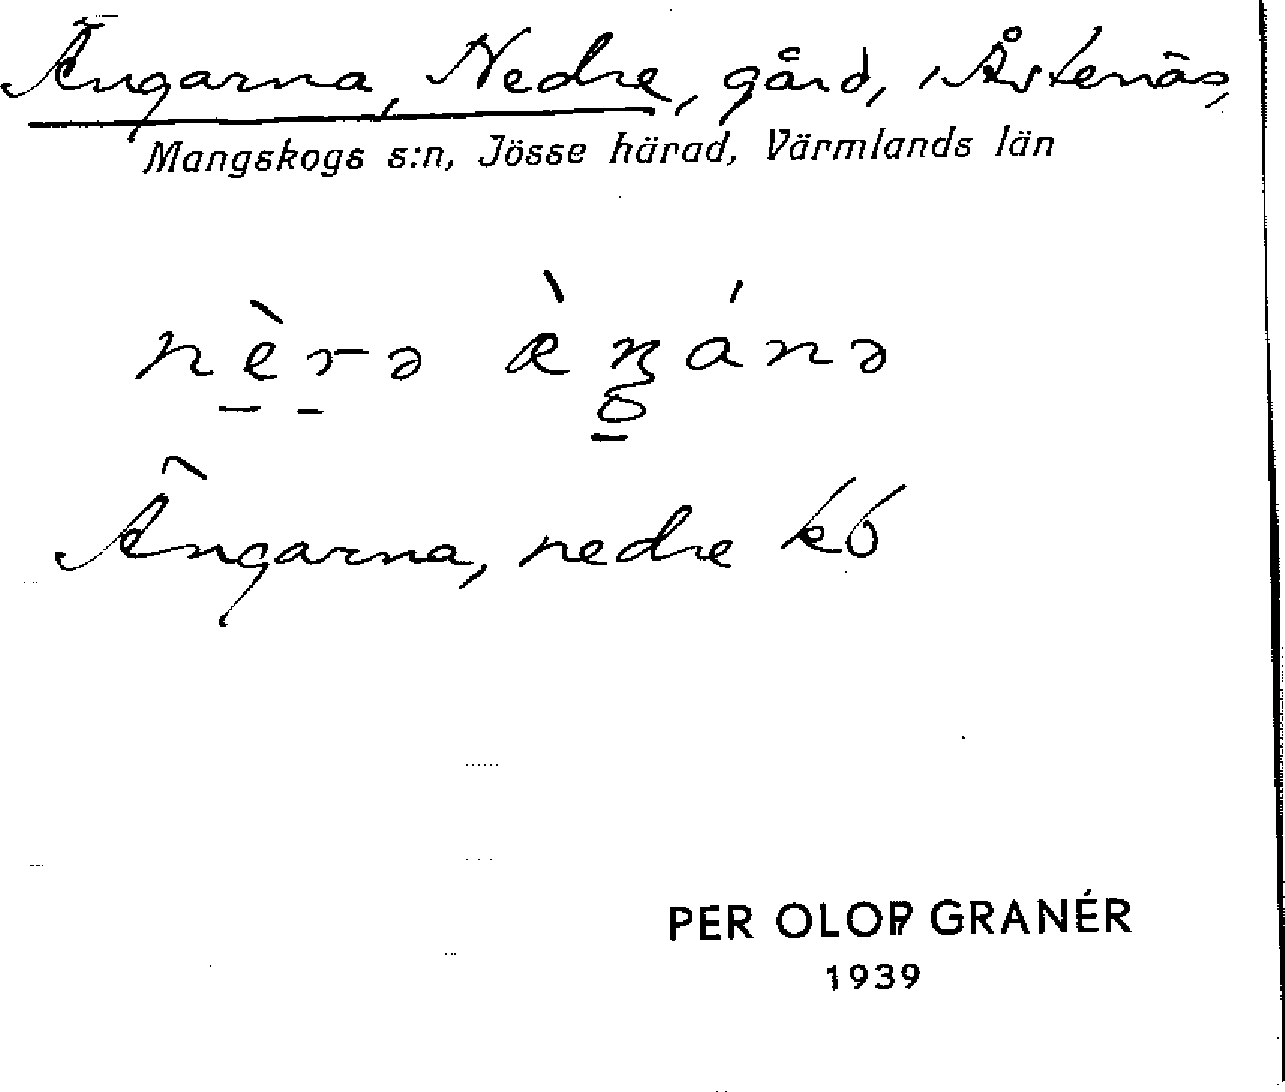 Ängarna, Nedre, gård, i Åstenäs,
Mangskogs s:n, Jösse härad, Värmlands län
nèrə
Ängarna, nedre kb
PER OLOF GRANÉR
1939